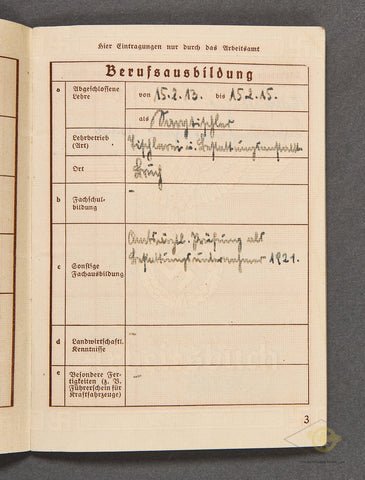 Hier Eintragungen nur durch das Arbeitsamt
Berufsausbildung
a Abgeschlossene Lehre von 15.2.13. bis 15.2.15.
als Sargtischler
Lehrbetrieb (Art) Tischlerei u. Bestattungsanstalt
Ort Bruch
b Fachschul-
bildung –
c Sonstige
Fachausbildung
Prüfung als
Bestattungsunternehmer 1921.
d Landwirtschaftl.
Kenntnisse –
e Besondere Fer-
tigkeiten (z. B.
Führerschein für
Kraftfahrzeuge) –
3